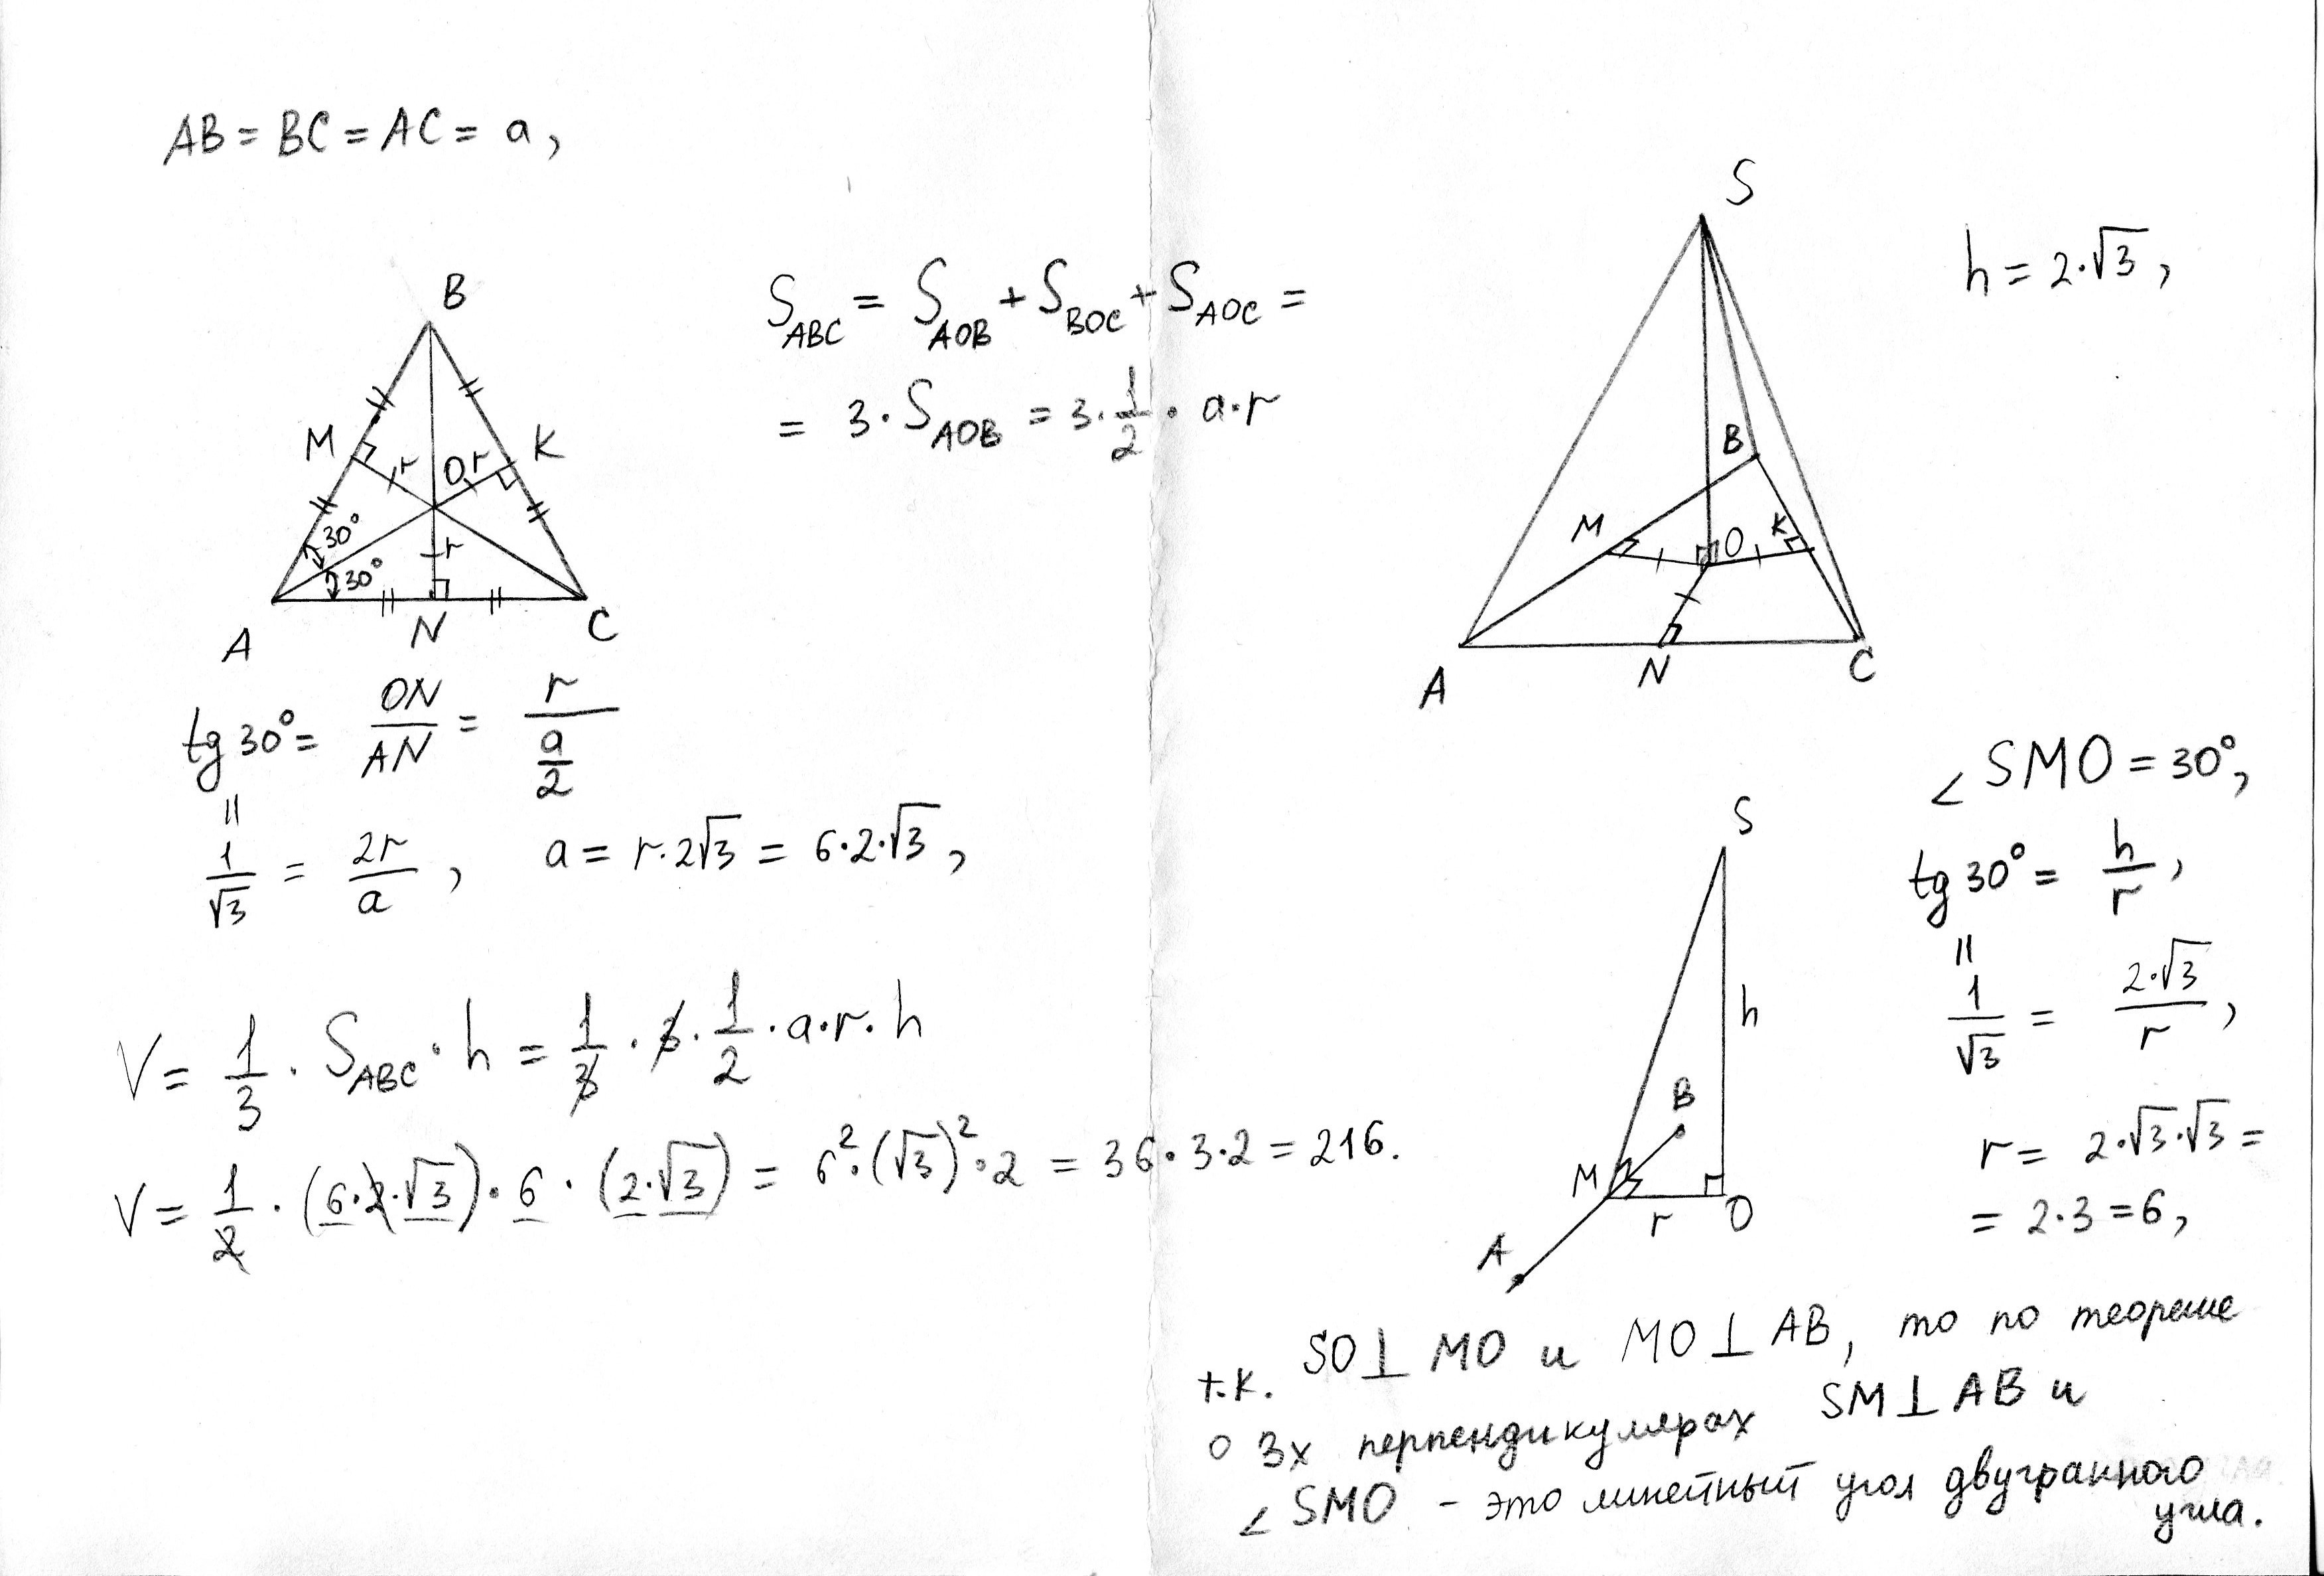 AB = BC = AC = a,
B
M
K
O
r
r
r
30°
30°
A
N
C
S_ABC = S_AOB + S_BOC + S_AOC =
= 3 · S_AOB = 3 · 1/2 · a · r
tg 30° = ON/AN = r/(a/2)
||
1/√3 = 2r/a , a = r · 2√3 = 6 · 2 · √3 ,
V = 1/3 · S_ABC · h = 1/3 · 3 · 1/2 · a · r · h
V = 1/2 · (6 · 2 · √3) · 6 · (2 · √3) = 6² · (√3)² · 2 = 36 · 3 · 2 = 216.
S
h = 2 · √3 ,
B
M
O
K
A
N
C
∠ SMO = 30°,
S
tg 30° = h/r ,
||
1/√3 = 2 · √3/r ,
h
B
M
r
O
A
r = 2 · √3 · √3 =
= 2 · 3 = 6 ,
т.к. SO ⊥ MO и MO ⊥ AB, то по теореме
о 3х перпендикулярах SM ⊥ AB и
∠ SMO - это линейный угол двугранного
угла.